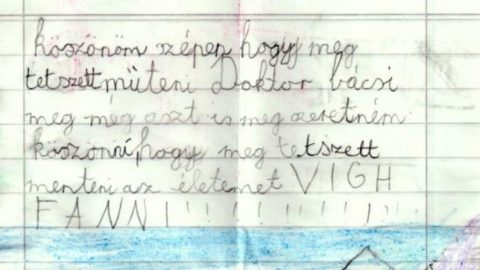 köszönöm szépen hogyj meg
tetszett müteni Doktor bácsi
meg még aszt is meg szeretném
köszönni, hogy meg tetszett
menteni az életemet VIGH
FANNI!!!!!!!!!!!!!